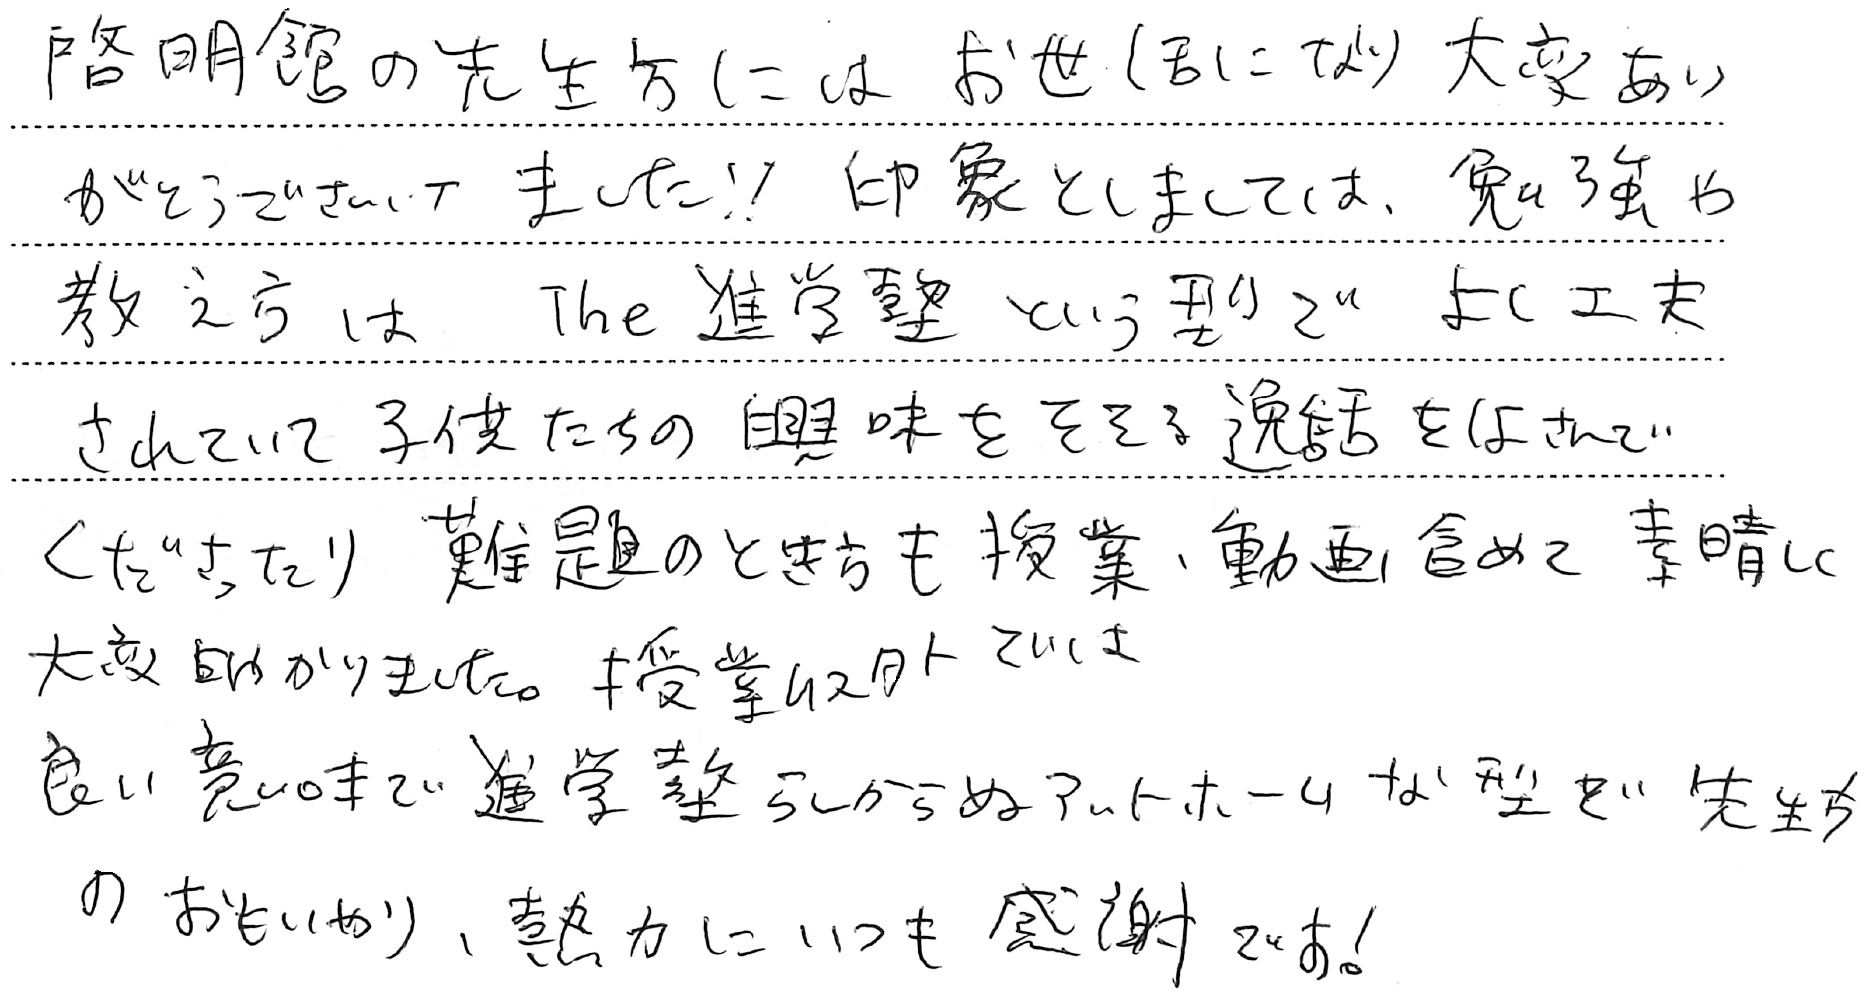 啓明館の先生方にはお世話になり大変あり
がとうございました!! 印象としましては、勉強や
教え方は The 進学塾という型で よく工夫
されていて子供たちの興味をそそる逸話をはさんで
くださったり 難題のとき方も授業、動画含めて素晴しく
大変助かりました。授業以外では
良い意味で進学塾らしからぬアットホームな型で先生方
のおもいやり、熱力にいつも感謝です!